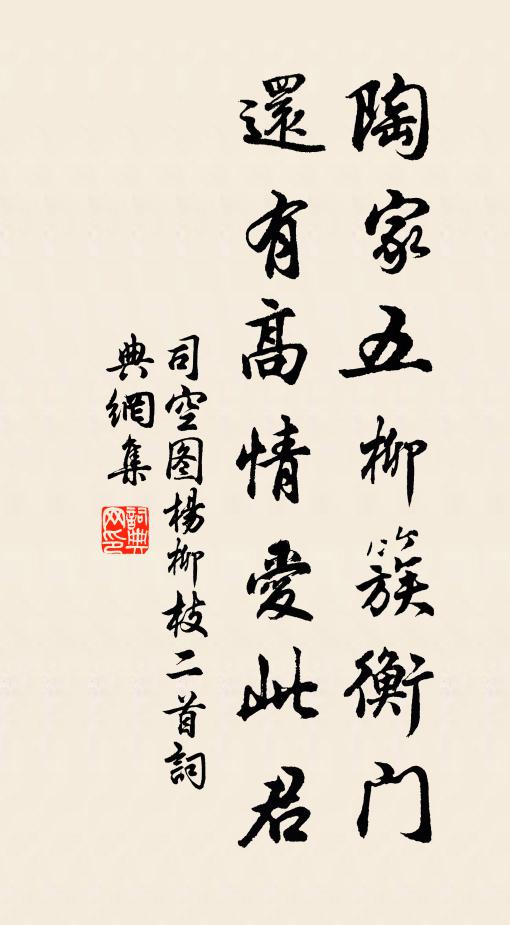 陶家五柳簇衡门
還有高情愛此君
司空图楊柳枝二首詞
典網集
詞典网印